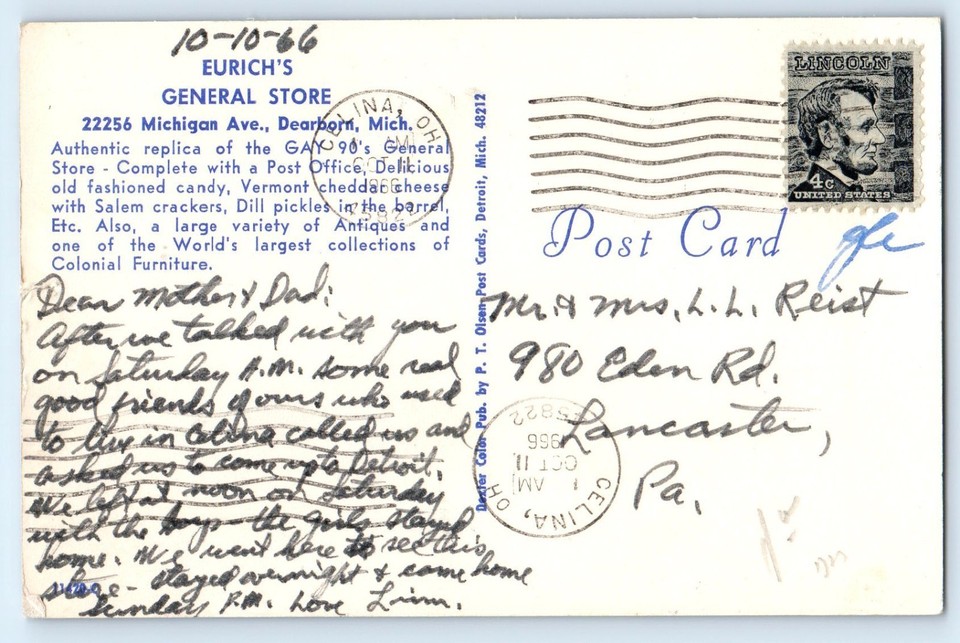 10-10-66
EURICH'S
GENERAL STORE
22256 Michigan Ave., Dearborn, Mich.
Authentic replica of the GAY 90's General
Store - Complete with a Post Office, Delicious
old fashioned candy, Vermont cheddar cheese
with Salem crackers, Dill pickles in the barrel,
Etc. Also, a large variety of Antiques and
one of the World's largest collections of
Colonial Furniture.
Dear Mother & Dad:
After we talked with you
on Saturday A.M. some real
good friends of ours who used
to live in Celina called us and
asked us to come up to Detroit.
We left at noon on Saturday
with the boys - the girls stayed
home. We went here to see this
store - stayed overnight & came home
Sunday P.M. Love
Dexter Color Pub. by P. T. Olsen-Post Cards, Detroit, Mich. 48212
CELINA, OH
AM
OCT 11
1966
45822
LINCOLN
4c
UNITED STATES
Post Card
Mr. & Mrs. L. L. Reist
980 Eden Rd.
Lancaster,
Pa.
CELINA, OH
AM
OCT 11
1966
45822